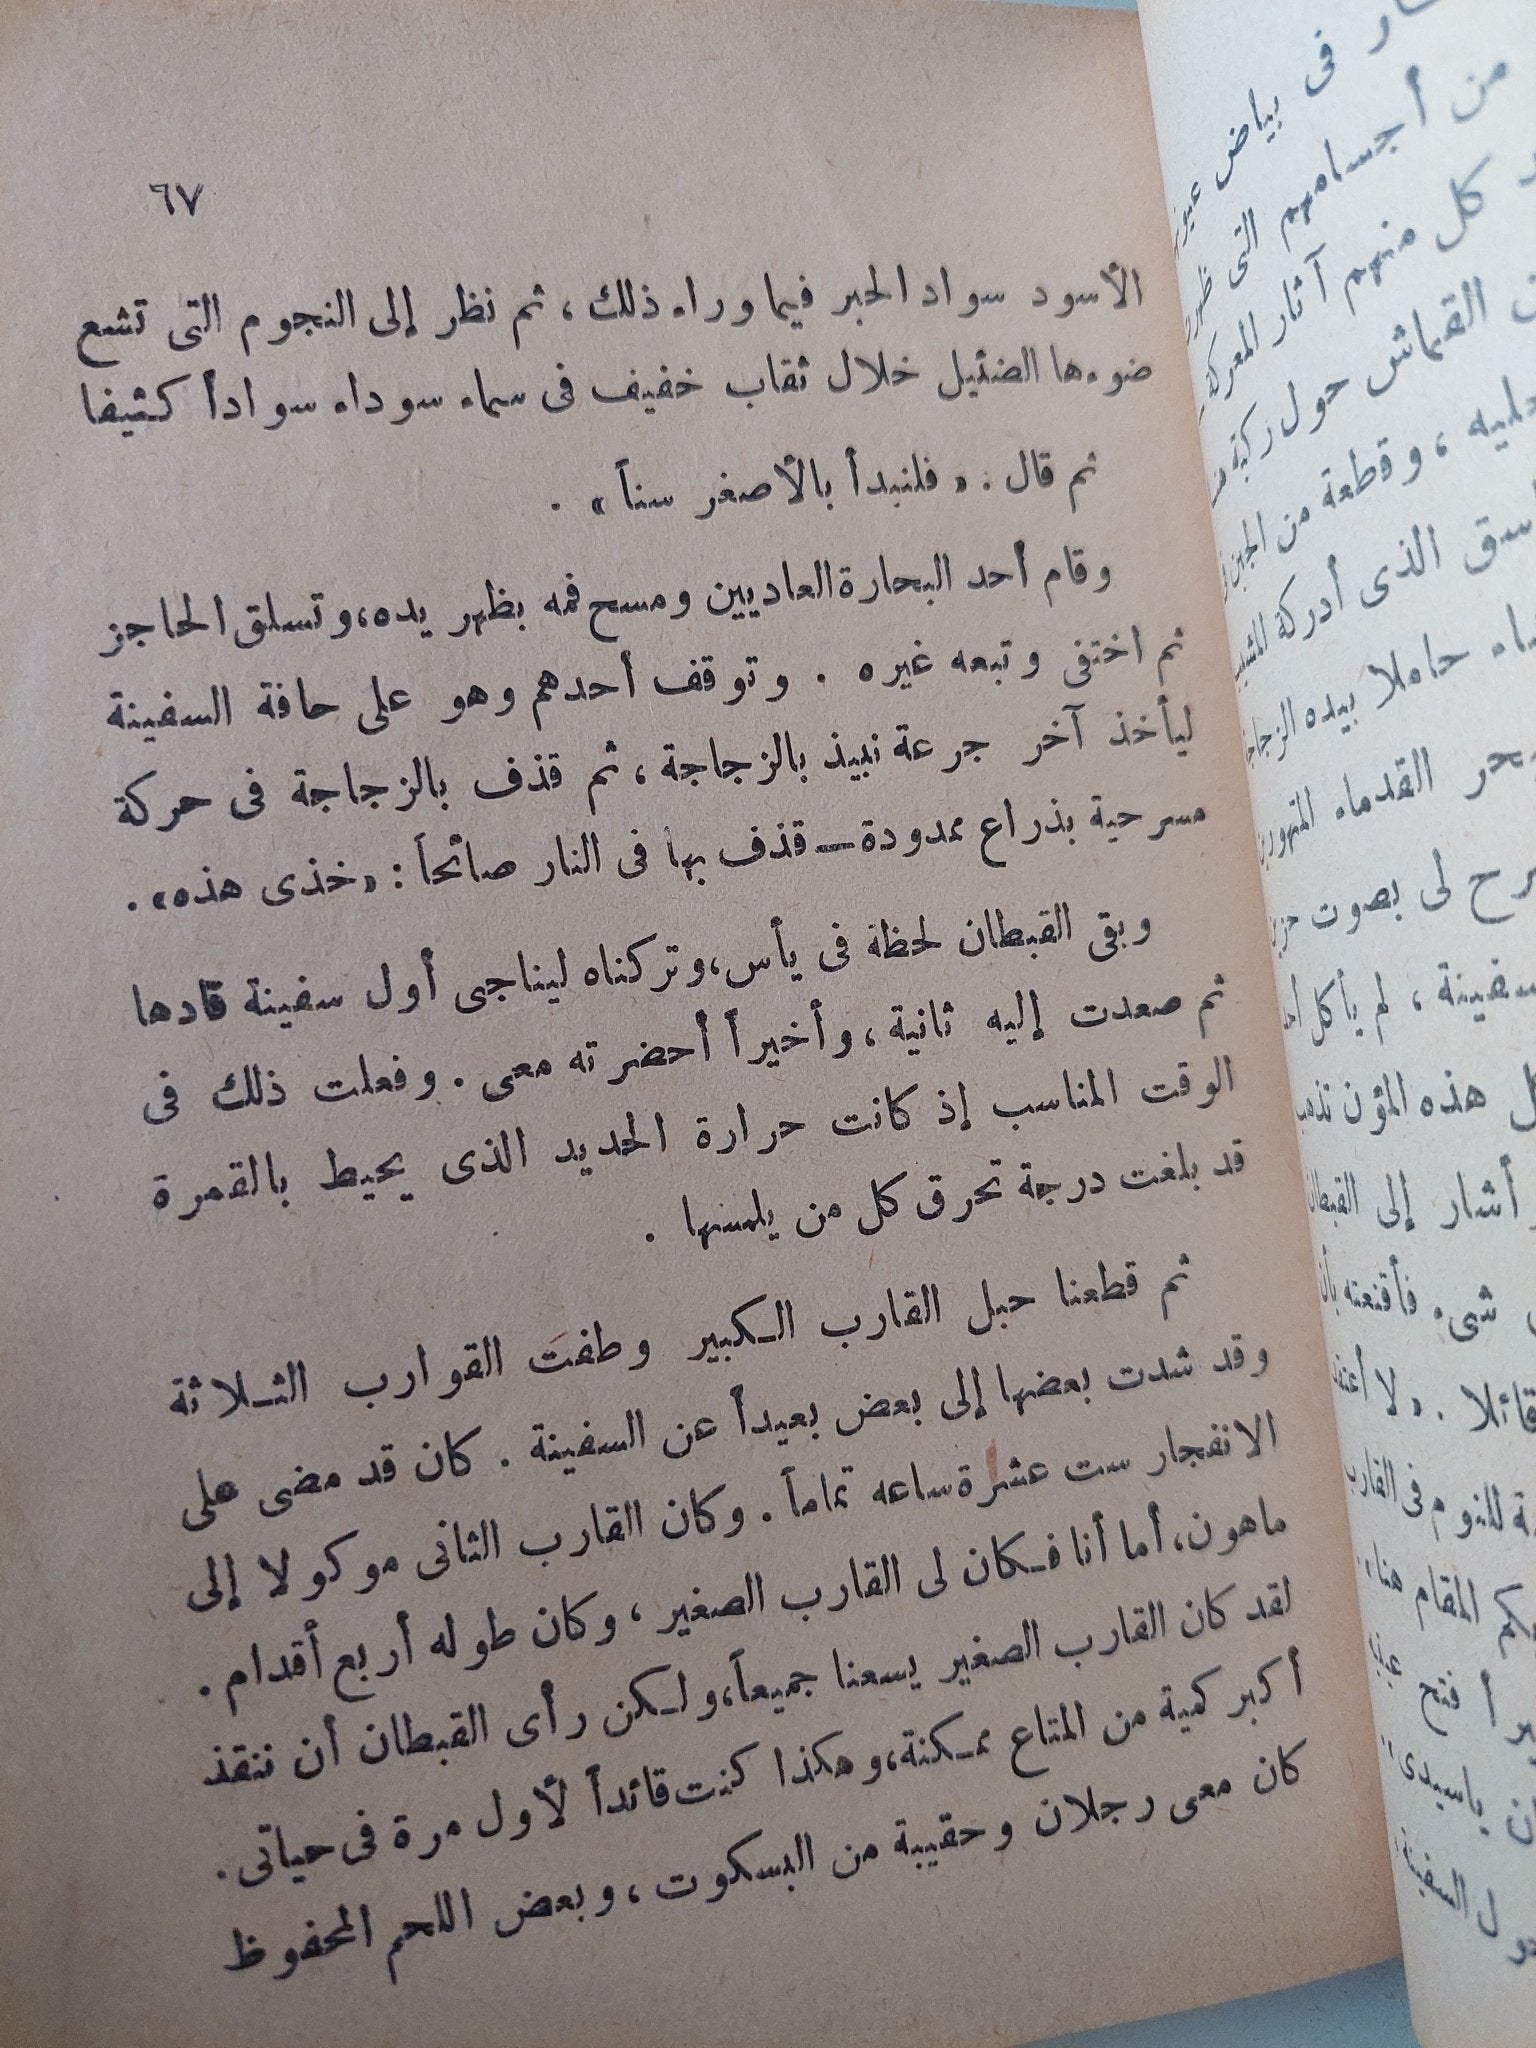 ٦٧
الأسود سواد الحبر فيما وراء ذلك ، ثم نظر إلى النجوم التى تشع
ضوءها الضئيل خلال ثقاب خفيف فى سماء سوداء سواداً كثيفا
ثم قال : « فلنبدأ بالأصغر سناً » .
وقام أحد البحارة العاديين ومسح فمه بظهر يده، وتسلق الحاجز
ثم اختفى وتبعه غيره . وتوقف أحدهم وهو على حافة السفينة
ليأخذ آخر جرعة نبيذ بالزجاجة ، ثم قذف بالزجاجة فى حركة
مسرحية بذراع ممدودة – قذف بها فى النار صائحاً : «خذى هذه» .
وبقى القبطان لحظة فى يأس، وتركناه ليناجى أول سفينة قادها
ثم صعدت إليه ثانية ، وأخيراً أحضرته معى . وفعلت ذلك فى
الوقت المناسب إذ كانت حرارة الحديد الذى يحيط بالقمرة
قد بلغت درجة تحرق كل من يلمسها .
ثم قطعنا حبل القارب الكبير وطفت القوارب الثلاثة
وقد شدت بعضها إلى بعض بعيداً عن السفينة . كان قد مضى على
الانفجار ست عشرة ساعه تماماً . وكان القارب الثانى موكولا إلى
ماهون، أما أنا فكان لى القارب الصغير ، وكان طوله أربع أقدام .
لقد كان القارب الصغير يسعنا جميعاً، ولكن رأى القبطان أن ننقذ
أكبر كمية من المتاع ممكنة، وهكذا كنت قائداً لأول مرة فى حياتى .
كان معى رجلان وحقيبة من البسكوت ، وبعض اللحم المحفوظ
فى بياض
من أجسامهم التى
كل منهم آثار المعركة
القماش حول ركبة
، وقطعة من
الذى أدركه
حاملا بيده
القدماء
لى بصوت
، لم يأكل
هذه المؤن تذهب
أشار إلى القبطان
شىء فأقنعته بأن
. « لا
للنوم فى القارب
المقام هنا
فتح
ياسيدى
السفينة